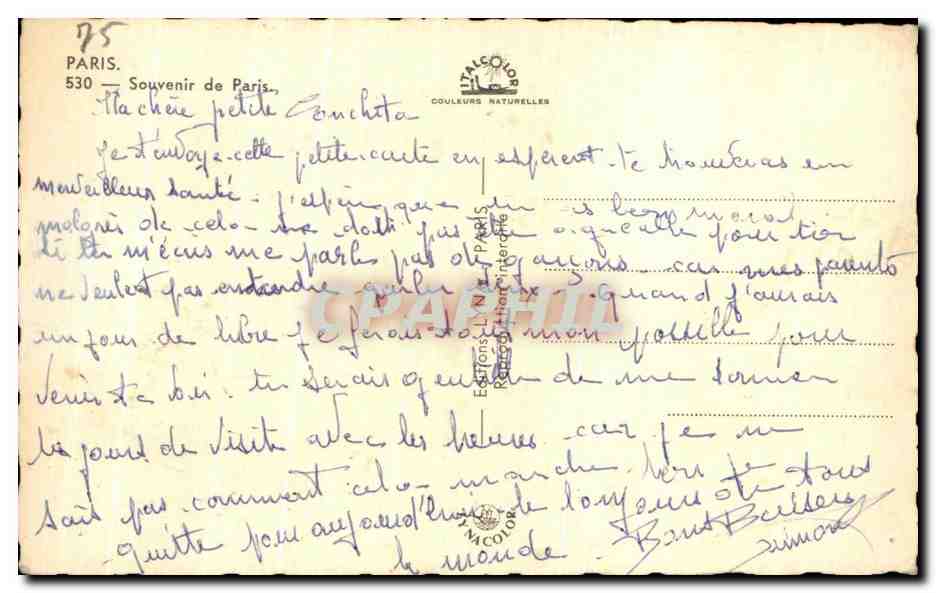 75
PARIS.
530 — Souvenir de Paris.
ITALCOLOR
COULEURS NATURELLES
Ma chère petite Conchita
Je t'envoye cette petite carte en espérent te trouveras en
merveilleus santé. j'espère que bon moral
malgrès de cela ne doit pas être pour toi
si tu m'écris me parle pas de garcons. car mes parents
ne veulent pas entendre parler quand j'aurais
un jour de libre je ferais tout mon possible pour
venir te voir. tu serais gentille de me donner
les jours de visite avec les heures car je ne
sais pas comment cela marche. bon je
quitte pour aujourd'hui de tous
le monde. Bons Baisers
Simone
Editions "LYNA" - PARIS
Reproduction interdite
LYNACOLOR
CPARPHIL